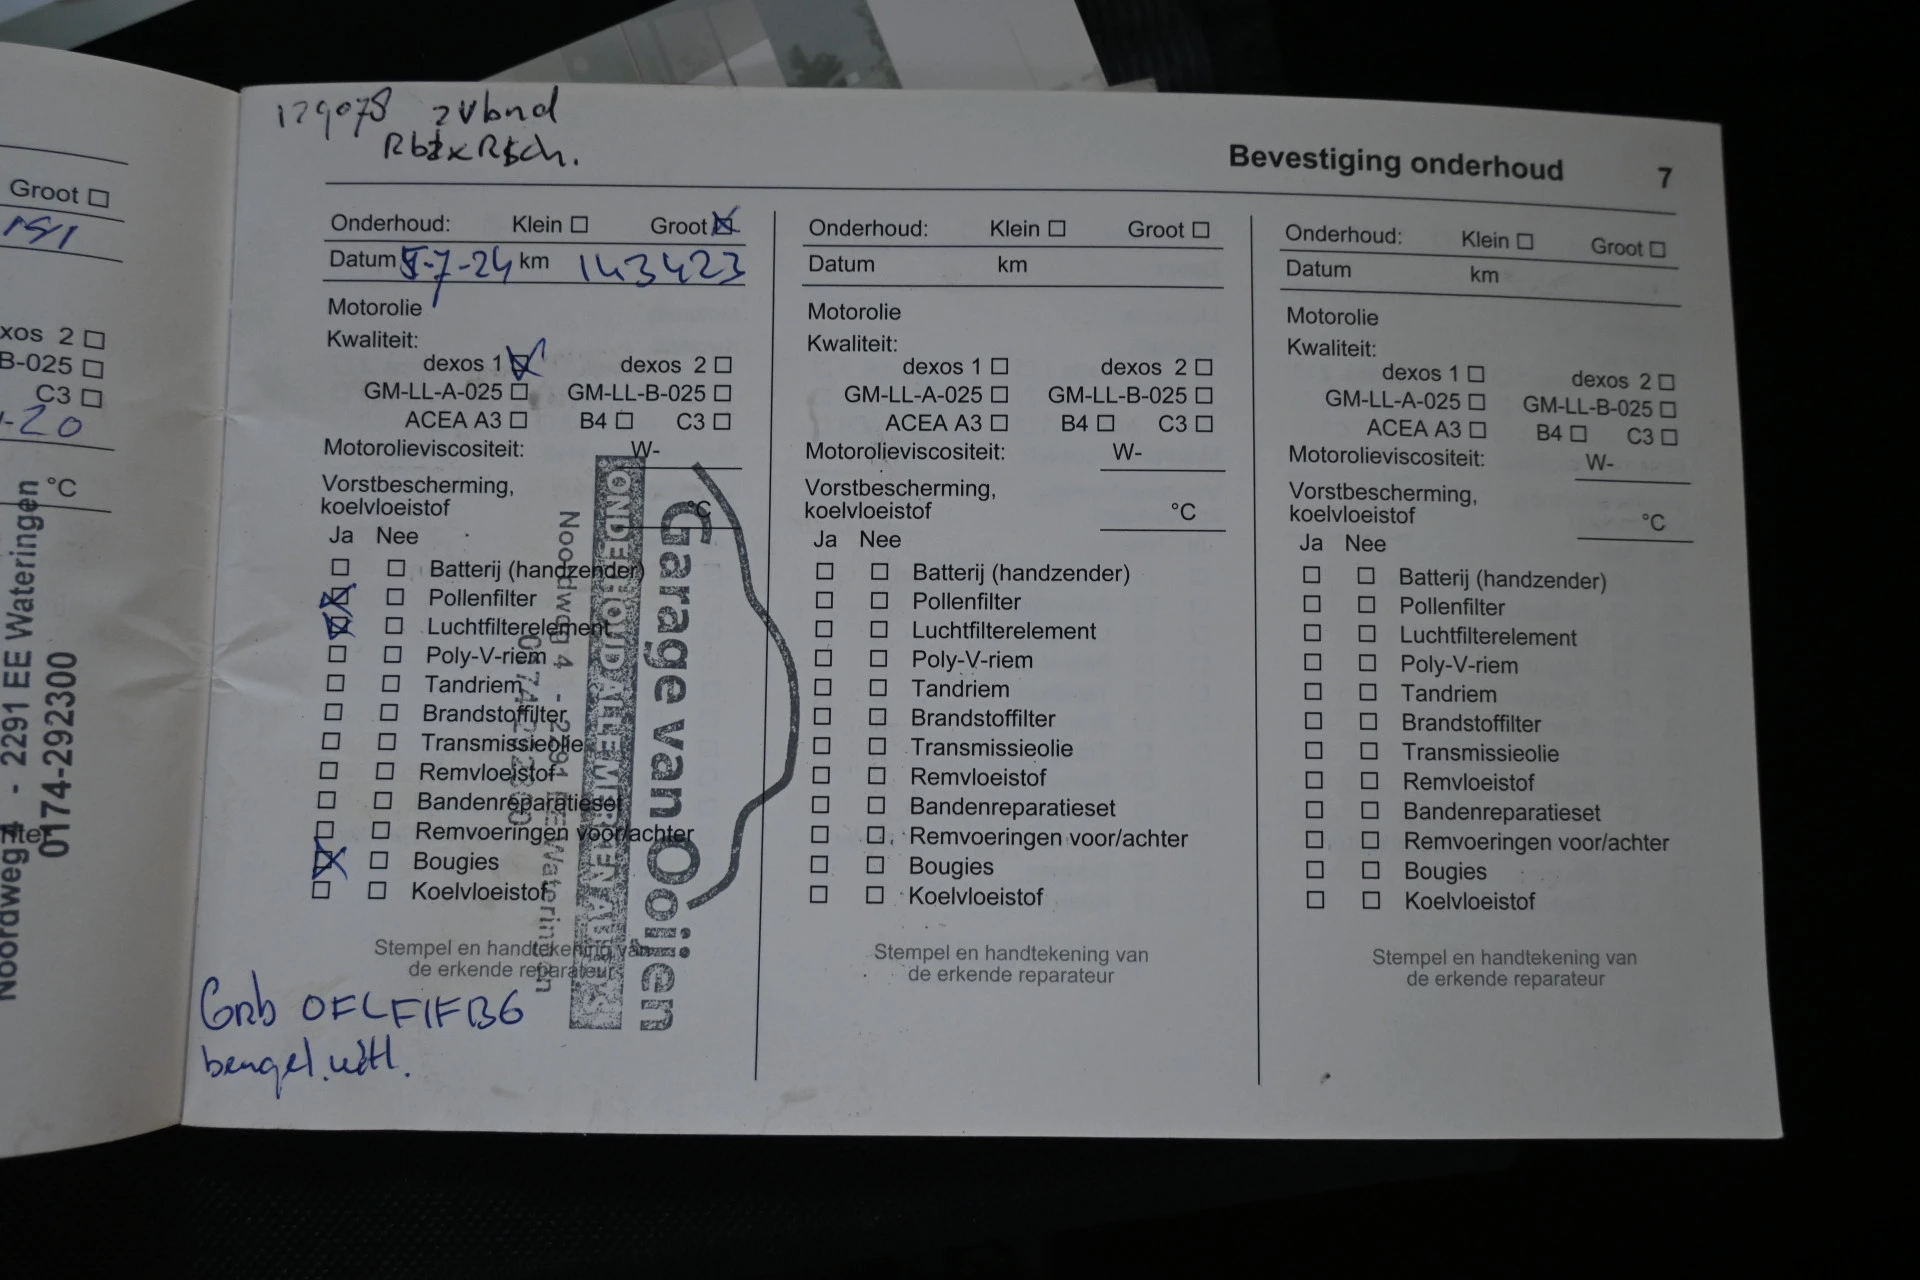 Groot
151
xos 2
B-025
C3
-20
°C
Noordweg 4 - 2291 EE Wateringen
0174-292300
129078 2Vbnd
Bevestiging onderhoud 7
Onderhoud: Klein Groot
Datum 5-7-24 km 143423
Motorolie
Kwaliteit:
dexos 1 dexos 2
GM-LL-A-025 GM-LL-B-025
ACEA A3 B4 C3
Motorolieviscositeit: W-
Vorstbescherming,
koelvloeistof °C
Ja Nee
Batterij (handzender)
Pollenfilter
Luchtfilterelement
Poly-V-riem
Tandriem
Brandstoffilter
Transmissieolie
Remvloeistof
Bandenreparatieset
Remvoeringen voor/achter
Bougies
Koelvloeistof
Stempel en handtekening van
de erkende reparateur
Garage van Ooijen
ONDERHOUD ALLE MERKEN AUTO'S
Noordweg 4 - 2291 EE Wateringen
0174-292300
Grb OFLFIFBG
Onderhoud: Klein Groot
Datum km
Motorolie
Kwaliteit:
dexos 1 dexos 2
GM-LL-A-025 GM-LL-B-025
ACEA A3 B4 C3
Motorolieviscositeit: W-
Vorstbescherming,
koelvloeistof °C
Ja Nee
Batterij (handzender)
Pollenfilter
Luchtfilterelement
Poly-V-riem
Tandriem
Brandstoffilter
Transmissieolie
Remvloeistof
Bandenreparatieset
Remvoeringen voor/achter
Bougies
Koelvloeistof
Stempel en handtekening van
de erkende reparateur
Onderhoud: Klein Groot
Datum km
Motorolie
Kwaliteit:
dexos 1 dexos 2
GM-LL-A-025 GM-LL-B-025
ACEA A3 B4 C3
Motorolieviscositeit: W-
Vorstbescherming,
koelvloeistof °C
Ja Nee
Batterij (handzender)
Pollenfilter
Luchtfilterelement
Poly-V-riem
Tandriem
Brandstoffilter
Transmissieolie
Remvloeistof
Bandenreparatieset
Remvoeringen voor/achter
Bougies
Koelvloeistof
Stempel en handtekening van
de erkende reparateur